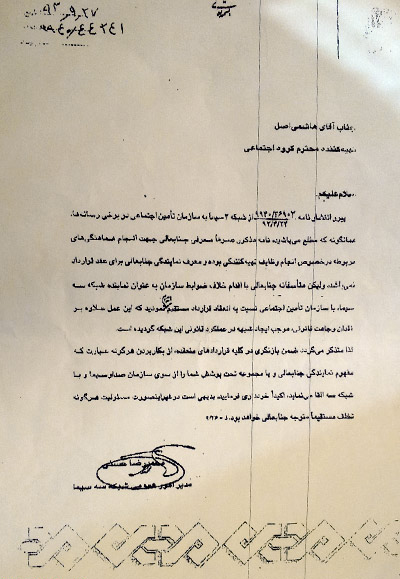 ۹۳٫۹٫۲۷
۹۹٫۴۰٫۴۴۲۴۱
جناب آقای هاشمی اصل
تهیه‌کننده محترم گروه اجتماعی
سلام علیکم
پیرو انتشار نامه ۹۹۴۰/۲۶۹۰۳ ۹۲/۴/۲۴ از شبکه ۳سیما به سازمان تأمین اجتماعی در برخی رسانه‌ها،
همانگونه که مطلع می‌باشید، نامه مذکور صرفاً معرفی جنابعالی جهت انجام هماهنگی‌های
مربوطه درخصوص انجام وظایف تهیه‌کنندگی بوده و معرف نمایندگی جنابعالی برای عقد قرارداد
نمی‌باشد، ولیکن متأسفانه جنابعالی با اقدام خلاف ضوابط سازمان به عنوان نماینده شبکه سه
سیما، با سازمان تأمین اجتماعی نسبت به انعقاد قرارداد مستقیم نمودید که این عمل علاوه بر
فقدان وجاهت قانونی، موجب ایجاد شبهه در عملکرد قانونی این شبکه گردیده است.
لذا متذکر می‌گردد، ضمن بازنگری در کلیه قراردادهای منعقده، از بکاربردن هرگونه عبارت که
مفهوم نمایندگی جنابعالی و یا مجموعه تحت پوشش شما را از سوی سازمان صداوسیما و یا
شبکه سه القا می‌نماید، اکیداً خودداری فرمایید، بدیهی است درغیراینصورت مسئولیت هرگونه
تخلف مستقیماً متوجه جنابعالی خواهد بود.
محمدرضا
مدیر امور عمومی شبکه سه سیما